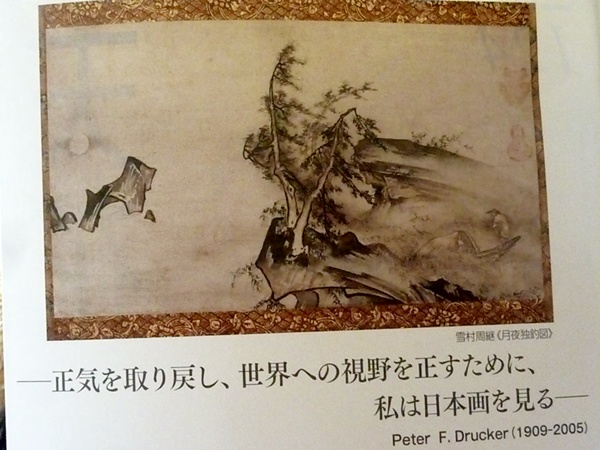 雪村周継《月夜独釣図》
―正気を取り戻し、世界への視野を正すために、
私は日本画を見る―
Peter F. Drucker (1909-2005)